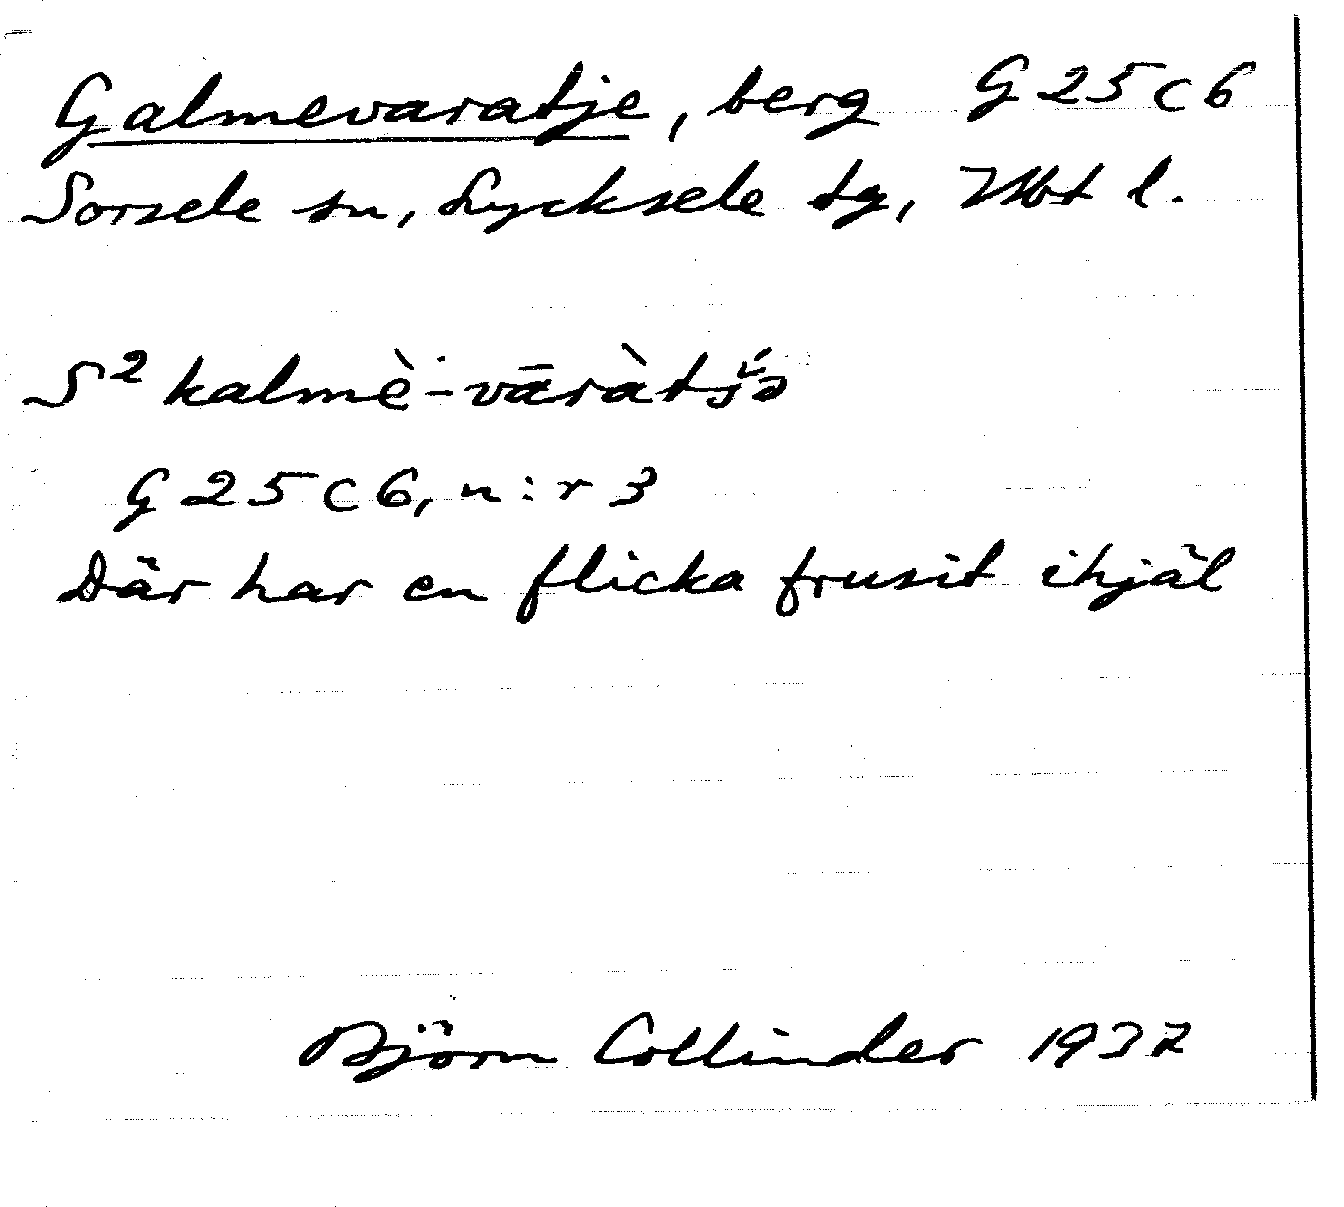 Galmevaratje, berg G 25 c 6
Sorsele sn, Lycksele tg, Vbt l.
S² kalmè-vāràtš́ə
G 25 c 6, n:r 3
Där har en flicka frusit ihjäl
Björn Collinder 1937